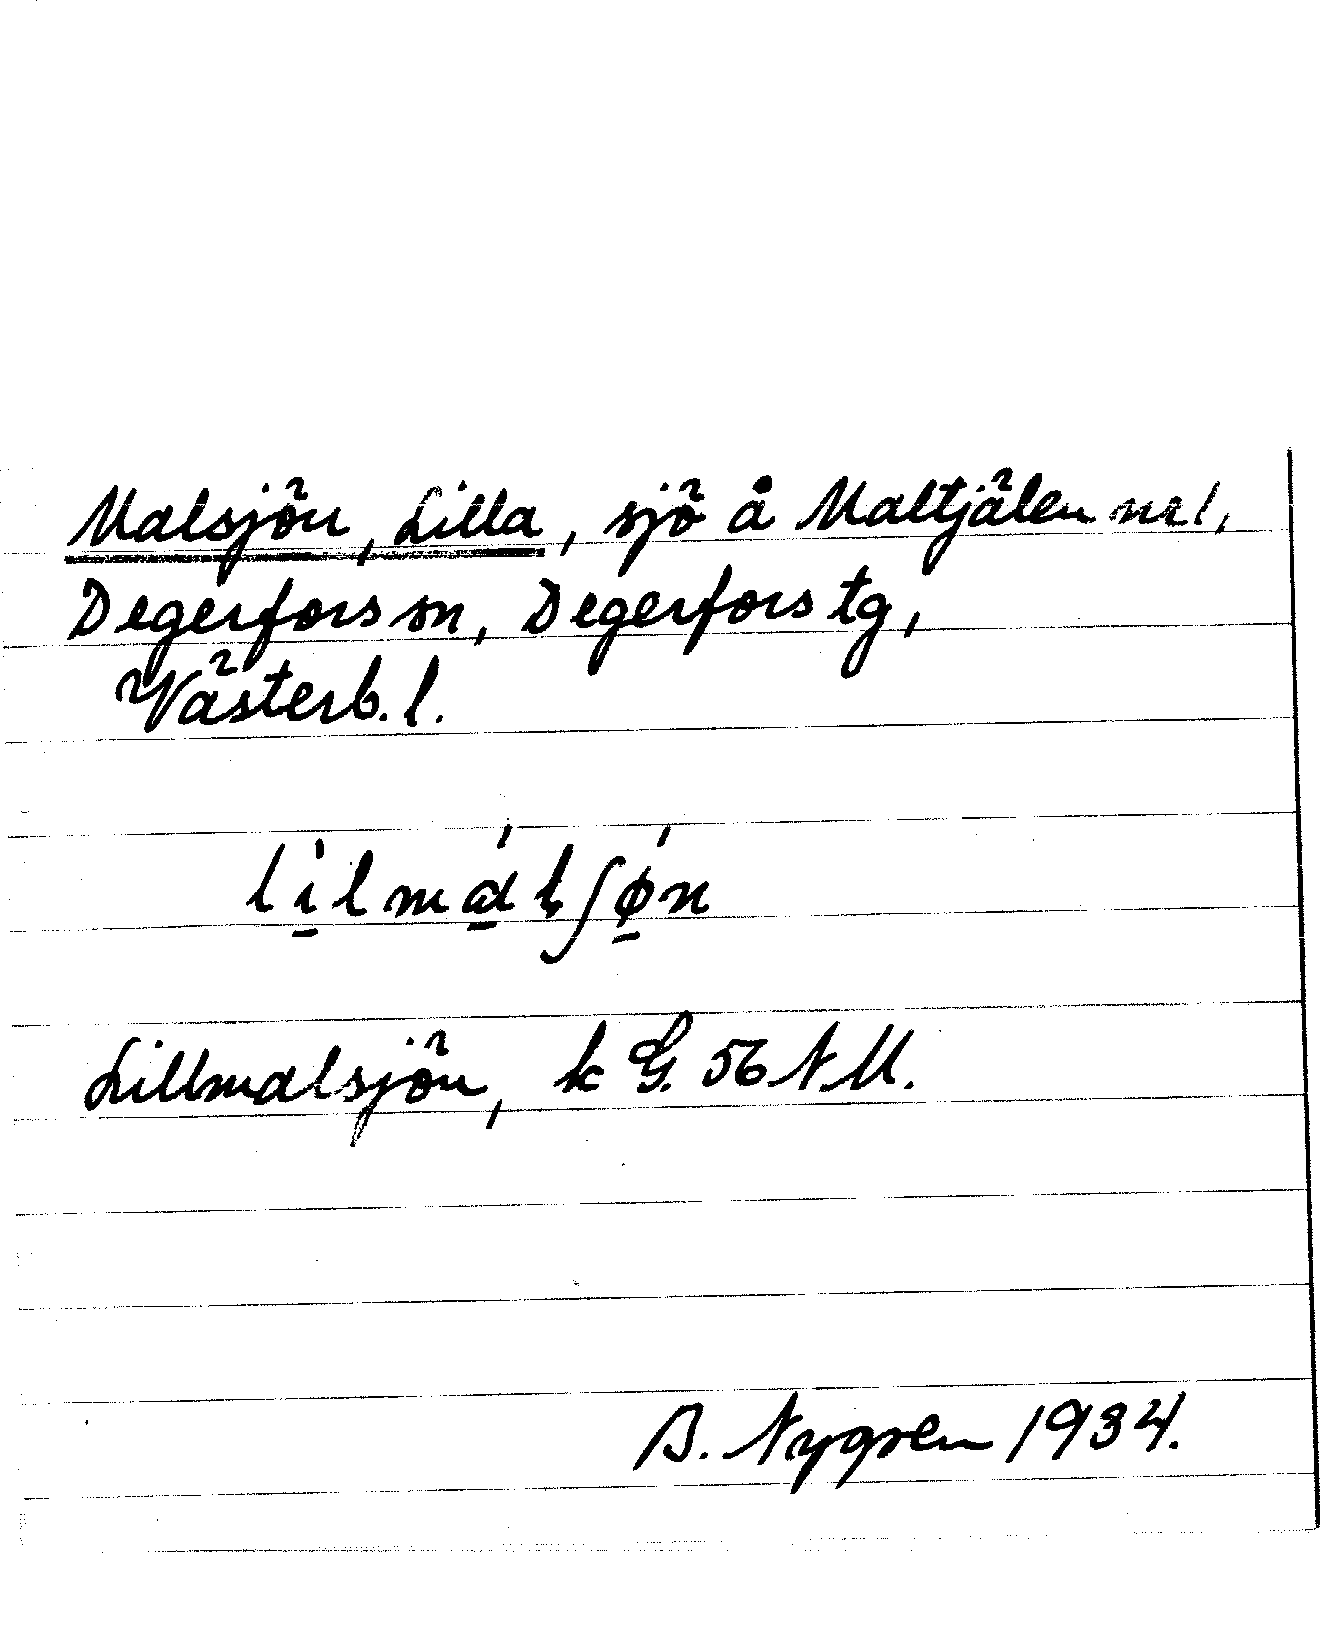 Malsjön, Lilla, sjö å Maltjälen nr 1,
Degerfors sn, Degerfors tg,
Västerb. l.
Lillmalsjön, k G. 56 N M.
B. Nygren 1934.